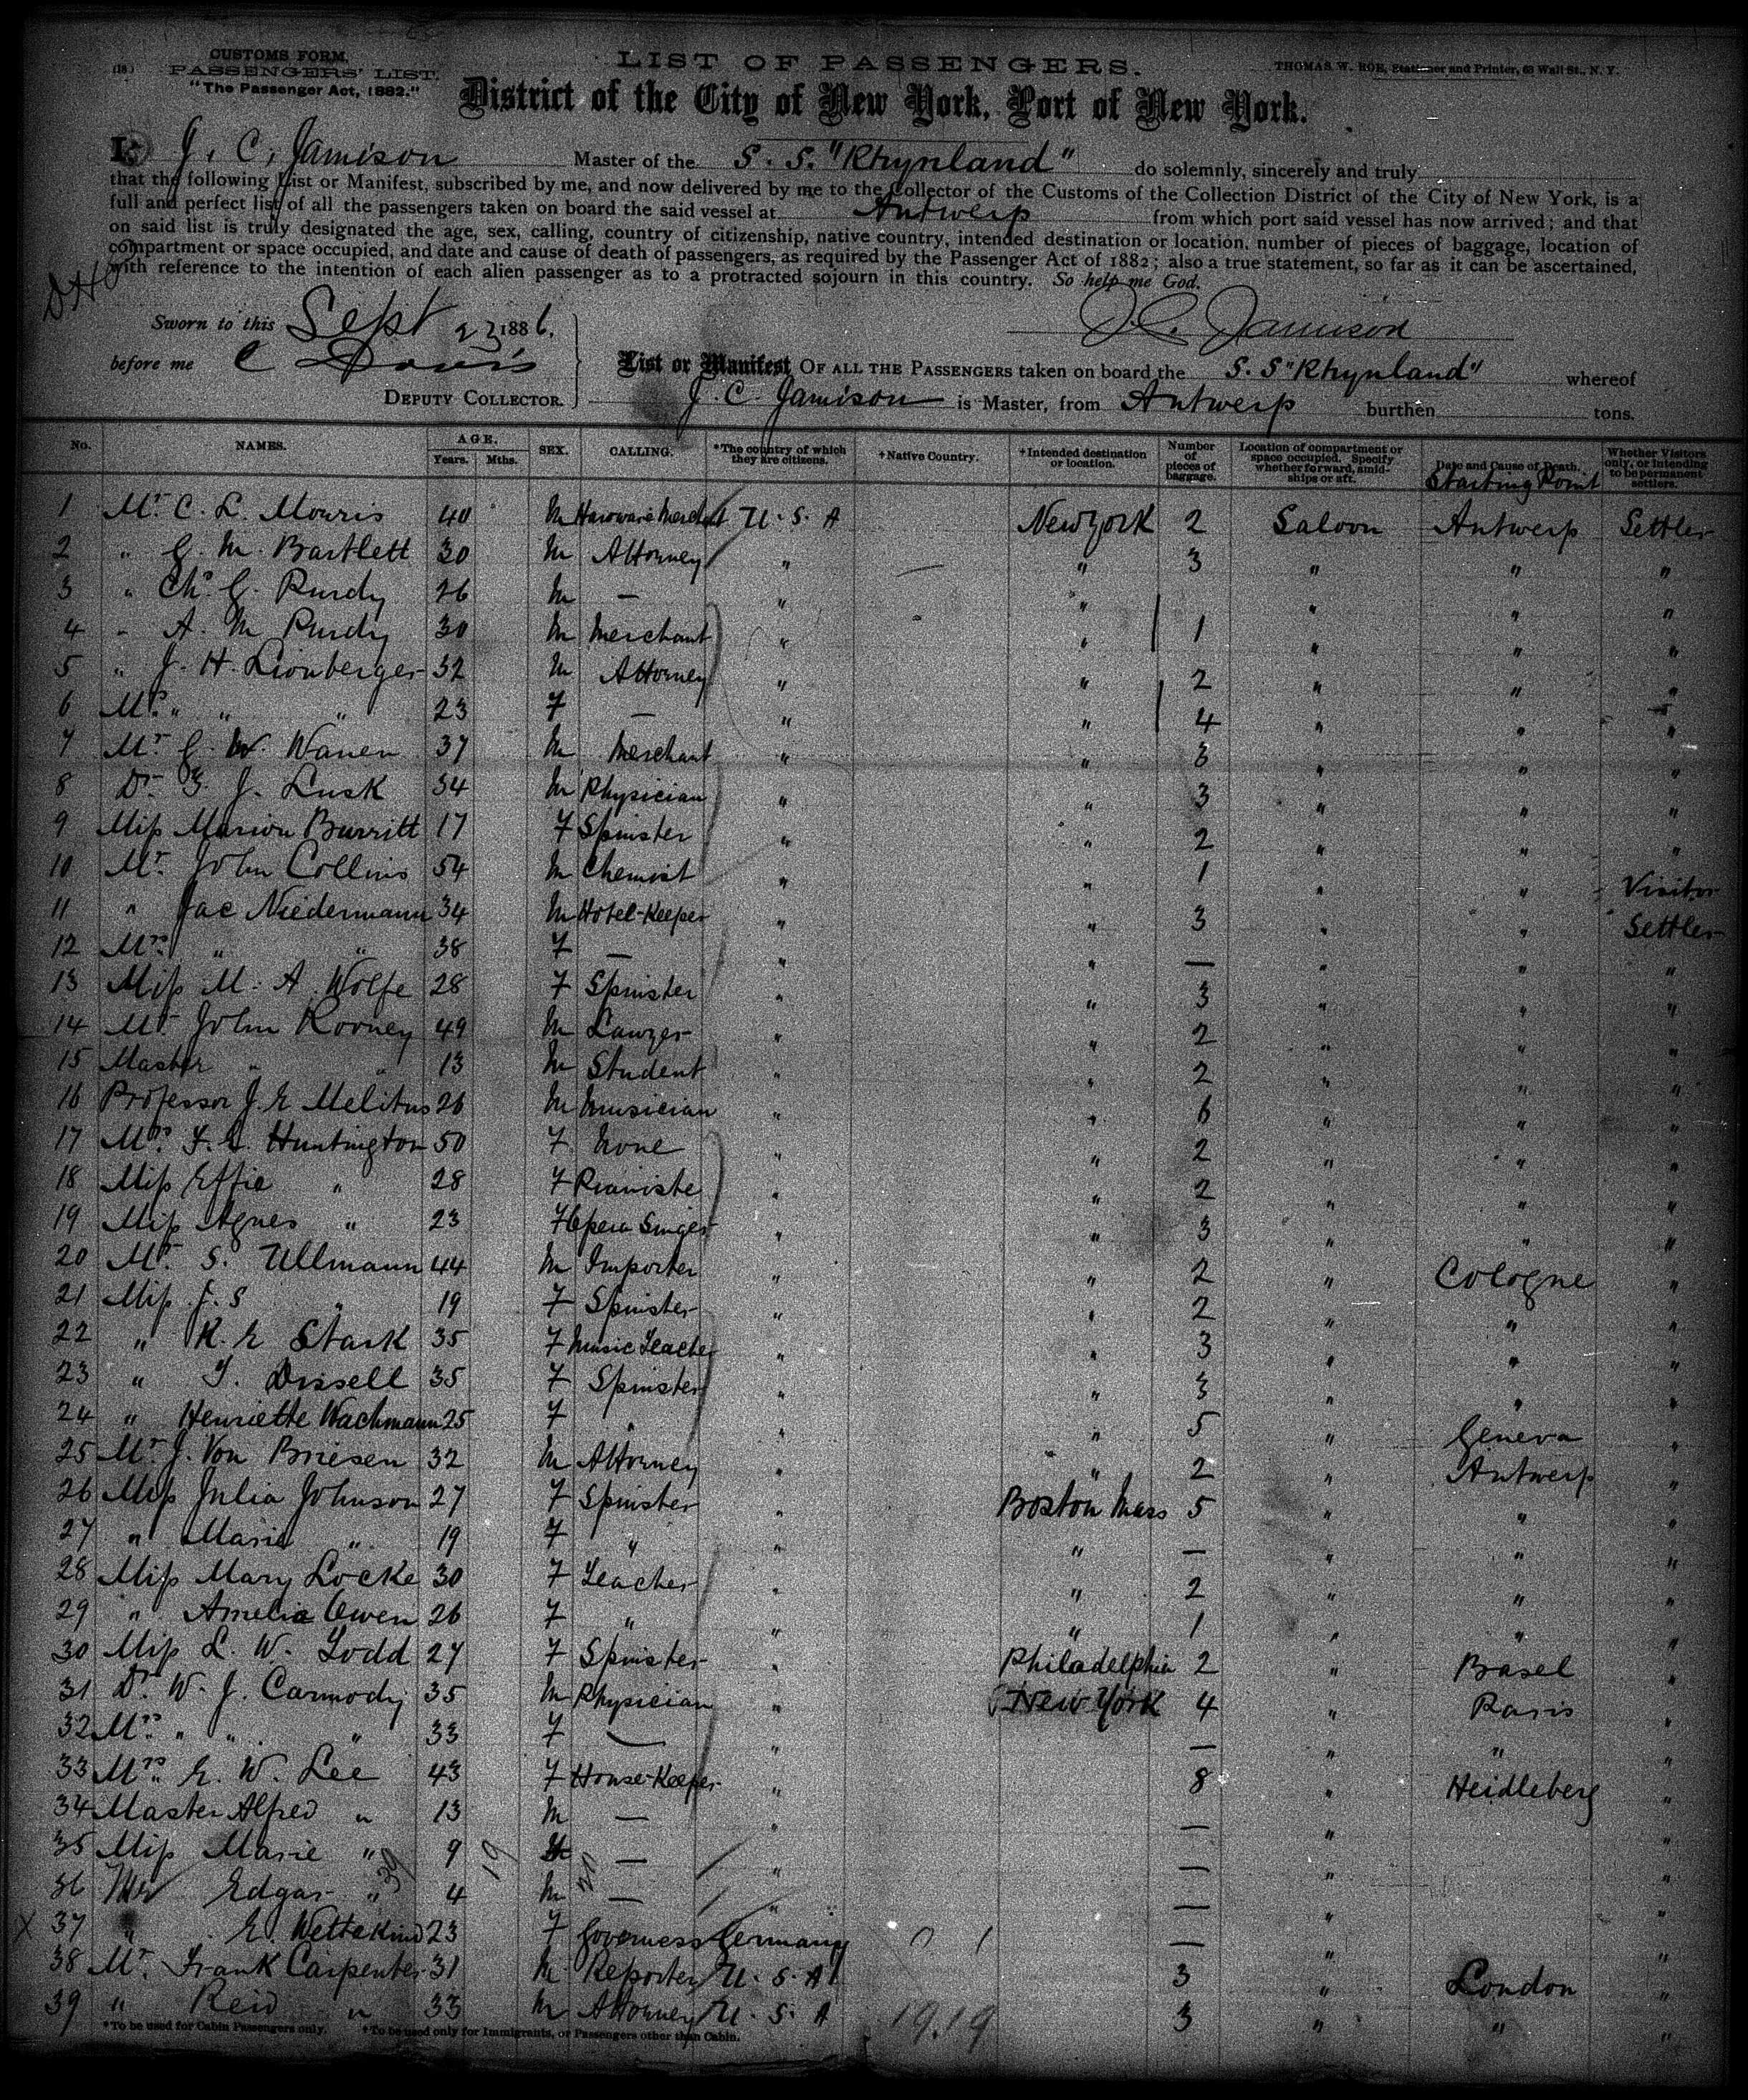 CUSTOMS FORM.
PASSENGERS' LIST.
"The Passenger Act, 1882."
LIST OF PASSENGERS.
THOMAS W. ROE, Stationer and Printer, 63 Wall St., N. Y.
District of the City of New York, Port of New York.
I, J. C. Jamison Master of the S. S. "Rhynland" do solemnly, sincerely and truly
that the following List or Manifest, subscribed by me, and now delivered by me to the Collector of the Customs of the Collection District of the City of New York, is a
full and perfect list of all the passengers taken on board the said vessel at Antwerp from which port said vessel has now arrived; and that
on said list is truly designated the age, sex, calling, country of citizenship, native country, intended destination or location, number of pieces of baggage, location of
compartment or space occupied, and date and cause of death of passengers, as required by the Passenger Act of 1882; also a true statement, so far as it can be ascertained,
with reference to the intention of each alien passenger as to a protracted sojourn in this country. So help me God.
Sworn to this Sept 23 1886. J. C. Jamison
before me C Davis
DEPUTY COLLECTOR.
List or Manifest OF ALL THE PASSENGERS taken on board the S. S "Rhynland" whereof
J. C. Jamison is Master, from Antwerp burthen tons.
No. NAMES. AGE. Years. Mths. SEX. CALLING. *The country of which they are citizens. †Native Country. †Intended destination or location. Number of pieces of baggage. Location of compartment or space occupied. Specify whether forward, amidships or aft. Date and Cause of Death. Starting Point Whether Visitors only, or intending to be permanent settlers.
1 Mr. C. L. Mouris 40 M Hardware Merchat U. S. A New York 2 Saloon Antwerp Settler
2 " G. M. Bartlett 30 M Attorney " " 3 " " "
3 " Ch. G. Purdy 26 M — " " " " "
4 " A. M Purdy 30 M Merchant " " 1 " " "
5 " J. H. Lionberger 32 M Attorney " " 2 " " "
6 Mrs. " " " 23 F — " " 4 " " "
7 Mr. G. W. Wanen 37 M Merchant " " 3 " " "
8 Dr. Z. J. Lusk 34 M Physician " " 3 " " "
9 Miss Marion Burritt 17 F Spinster " " 2 " " "
10 Mr. John Collins 54 M Chemist " " 1 " " Visitor
11 " Jac Niedermann 34 M Hotel-Keeper " " 3 " " Settler
12 Mrs. " " 38 F — " " — " " "
13 Miss M. A. Wolfe 28 F Spinster " " 3 " " "
14 Mr. John Rooney 49 M Lawyer " " 2 " " "
15 Master " " 13 M Student " " 2 " " "
16 Professor J. E Melitus 26 M Musician " " 6 " " "
17 Mrs. F. G. Huntington 50 F None " " 2 " " "
18 Miss Effie " 28 F Pianiste " " 2 " " "
19 Miss Agnes " 23 F Opera Singer " " 3 " " "
20 Mr. S. Ullmann 44 M Importer " " 2 " Cologne "
21 Miss J. S " 19 F Spinster " " 2 " " "
22 " K. E Stark 35 F Music Teacher " " 3 " " "
23 " T. Dissell 35 F Spinster " " 3 " " "
24 " Henriette Wachmann 25 F " " " 5 " Geneva "
25 Mr. J. Von Briesen 32 M Attorney " " 2 " Antwerp "
26 Miss Julia Johnson 27 F Spinster " Boston Mass 5 " " "
27 " Marie " 19 F " " " — " " "
28 Miss Mary Locke 30 F Teacher " " 2 " " "
29 " Amelia Owen 26 F " " " 1 " " "
30 Miss L. W. Todd 27 F Spinster " Philadelphia 2 " Basel "
31 Dr. W. J. Carmody 35 M Physician " New York 4 " Paris "
32 Mrs. " " " 33 F — " — " " "
33 Mrs. E. W. Lee 43 F House-Keeper " 8 " Heidleberg "
34 Master Alfred " 13 M — " — " "
35 Miss Marie " 9 — " — " "
36 Mr Edgar " 4 M — " — " "
37 " E. Wettekind 23 F Governess Germany — " "
38 Mr. Frank Carpenter 31 M Reporter U. S. A 3 " London "
39 " Reid " 33 M Attorney U. S. A 3 " " "
19.19
*To be used for Cabin Passengers only. †To be used only for Immigrants, or Passengers other than Cabin.